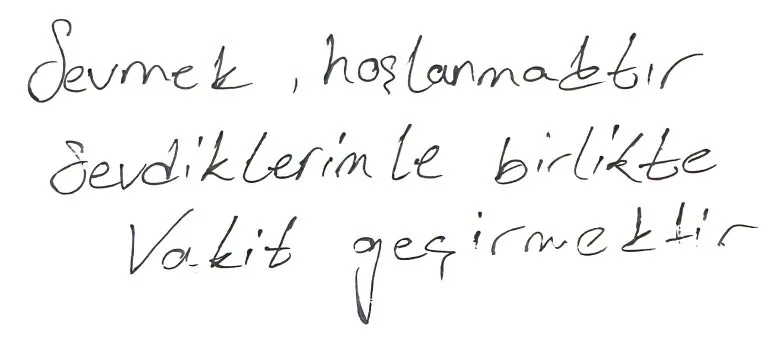 Sevmek, hoşlanmaktır
Sevdiklerimle birlikte
Vakit geçirmektir